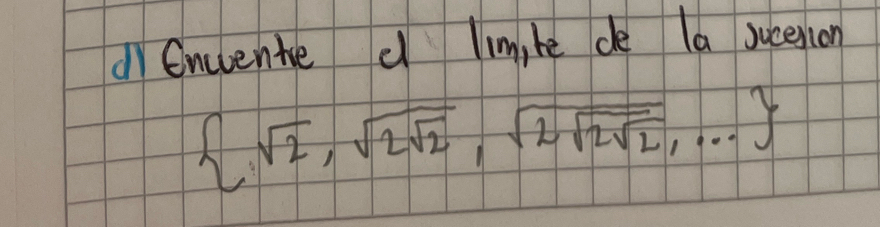 d) Encuentre el limite de la sucesion
{ √2, √(2√2), √(2√(2√2)), ... }